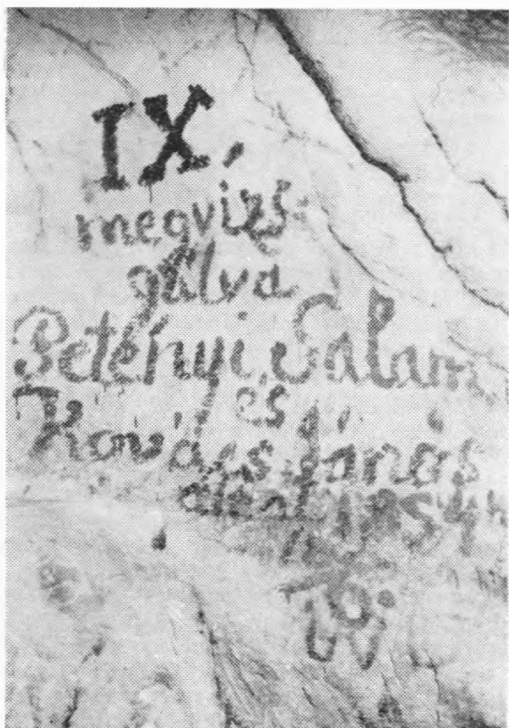 IX.
megvizs-
gálva
Petényi, Salam
és
Kovács János
által